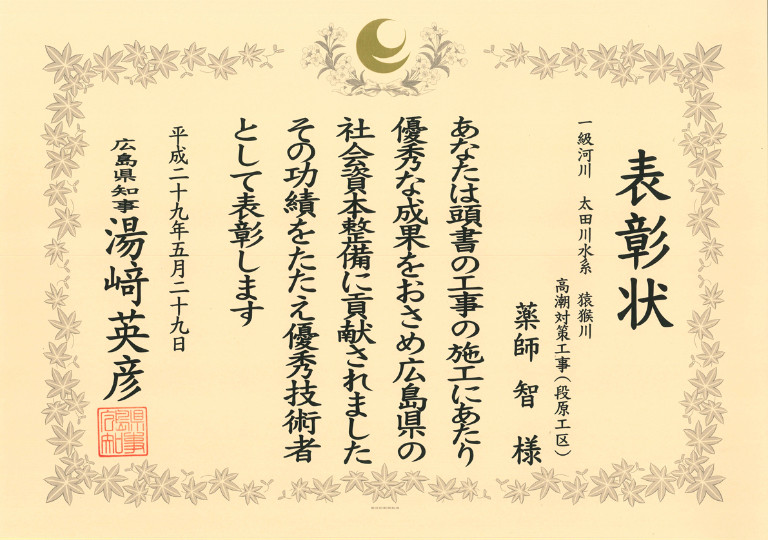 表彰状
一級河川　太田川水系　猿猴川
高潮対策工事（段原工区）
薬師智様
あなたは頭書の工事の施工にあたり
優秀な成果をおさめ広島県の
社会資本整備に貢献されました
その功績をたたえ優秀技術者
として表彰します
平成二十九年五月二十九日
広島県知事　湯﨑英彦
広島県知事